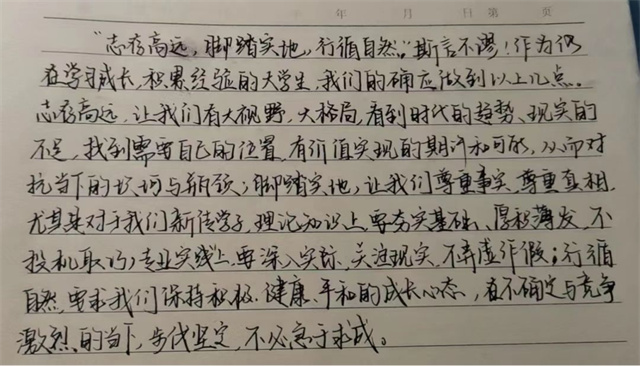 年 月 日 第 页
"志存高远，脚踏实地，行循自然。"斯言不谬！作为仍
在学习成长，积累经验的大学生，我们的确应做到以上几点。
志存高远，让我们有大视野，大格局，看到时代的趋势、现实的
不足，找到需要自己的位置，有价值实现的期许和可能，从而对
抗当下的坎坷与瓶颈；脚踏实地，让我们尊重事实，尊重真相，
尤其是对于我们新传学子，理论知识上要夯实基础、厚积薄发，不
投机取巧，专业实线上要深入实际，关注现实，不弄虚作假；行循
自然，要求我们保持积极、健康、平和的成长心态，在不确定与竞争
激烈的当下，步伐坚定，不必急于求成。